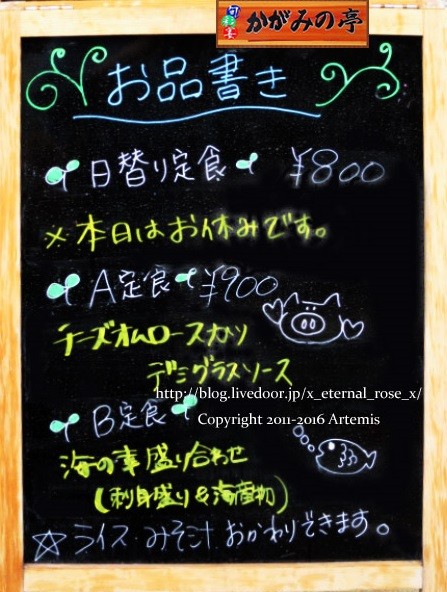 旬彩宴 かがみの亭
お品書き
日替り定食 ¥800
※本日はお休みです。
A定食 ¥900
チーズオムロースカツ
デミグラスソース
http://blog.livedoor.jp/x_eternal_rose_x/
Copyright 2011-2016 Artemis
B定食
海の幸盛り合わせ
(刺身盛り&海産物)
☆ライス・みそ汁おかわりできます。